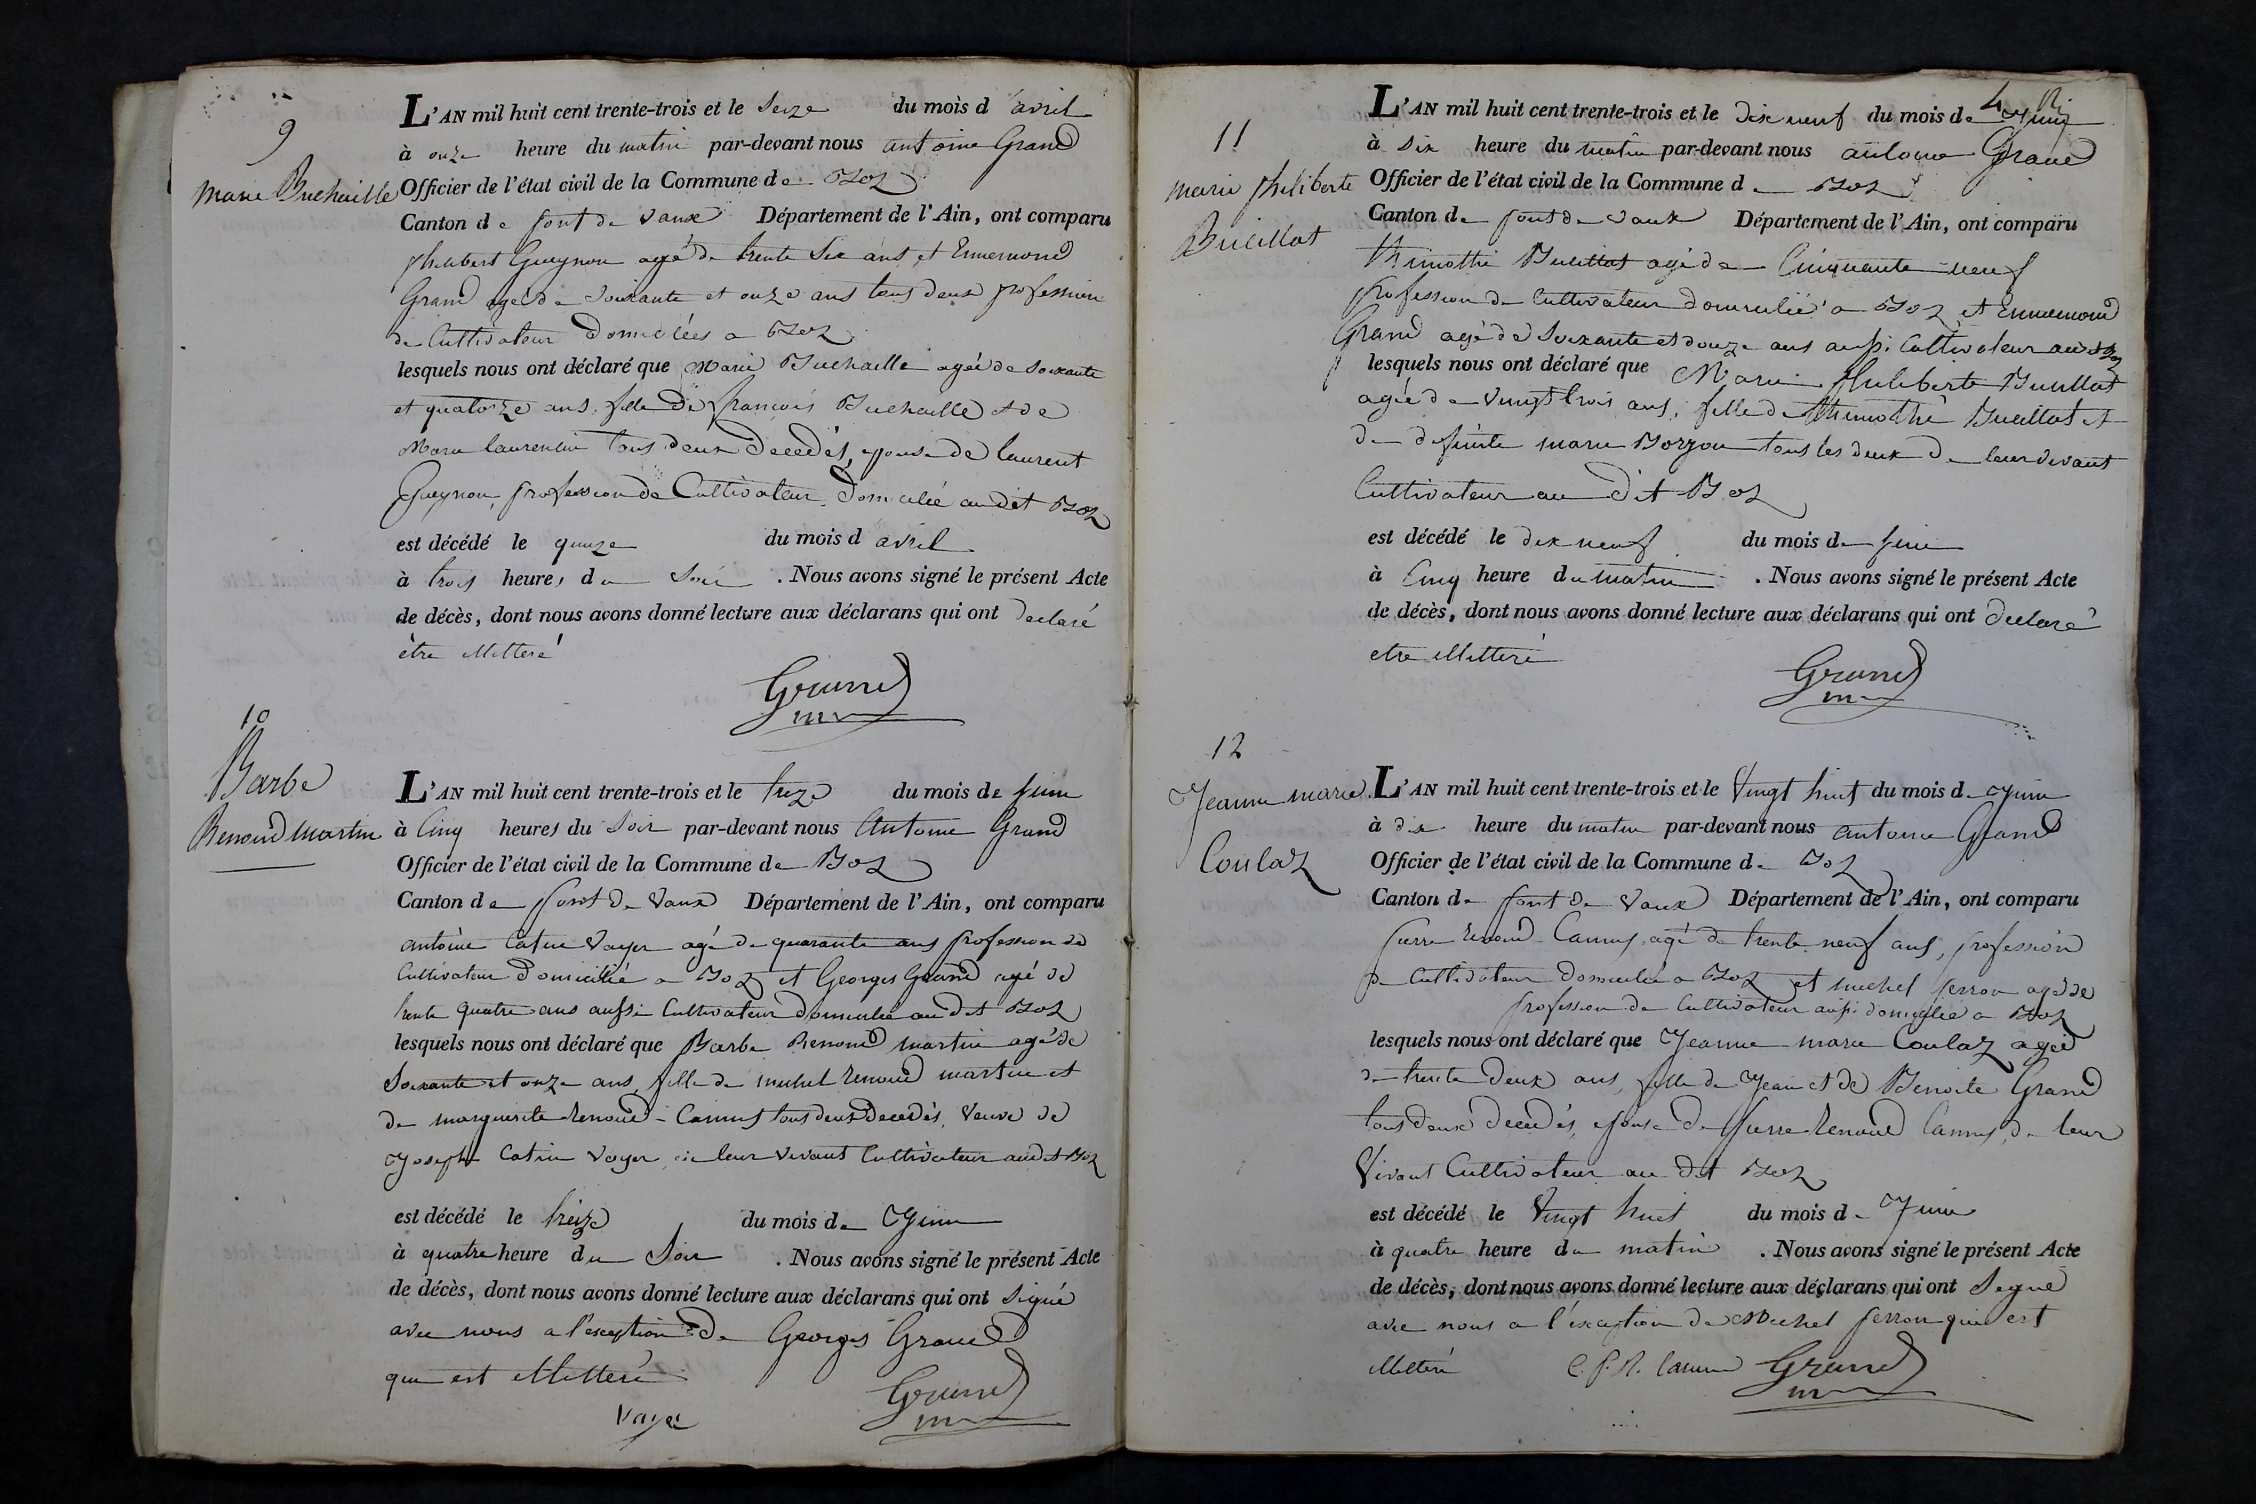 9
Marie Buchaille
L'AN mil huit cent trente-trois et le Seize du mois d'avril
à onze heure du matin par-devant nous antoine Grand
Officier de l'état civil de la Commune de Boz
Canton de pont de vaux Département de l'Ain, ont comparu
philibert Gueynon agé de trente Six ans et Ennemond
Grand agé de Soixante et onze ans tous deux profession
de Cultivateur domiciliés a Boz
lesquels nous ont déclaré que Marie Buchaille agée de soixante
et quatorze ans, fille de françois Buchaille et de
Marie laurencin tous deux décedés, epouse de laurent
Gueynon, profession de Cultivateur Domicilié au dit Boz
est décédé le quinze du mois d avril
à trois heures du Soir . Nous avons signé le présent Acte
de décès, dont nous avons donné lecture aux déclarans qui ont declaré
être illitteré
Grand
10
Barbe
Renoud Martin
L'AN mil huit cent trente-trois et le treize du mois de juin
à Cinq heures du Soir par-devant nous Antoine Grand
Officier de l'état civil de la Commune de Boz
Canton de pont de Vaux Département de l'Ain, ont comparu
antoine Catin Voyer agé de quarante ans profession de
Cultivateur domicilié a Boz et Georges Grand agé de
trente quatre ans aussi Cultivateur domicilié au dit Boz
lesquels nous ont déclaré que Barbe Renoud martin agé de
Soixante et onze ans, fille de michel renoud martin et
de marguerite renoud-Camus tous deux décedés, Veuve de
Joseph Catin Voyer, de leur vivant Cultivateur audit Boz
est décédé le treize du mois de Juin
à quatre heure du Soir . Nous avons signé le présent Acte
de décès, dont nous avons donné lecture aux déclarans qui ont signé
avec nous a l'exception de Georges Grand
qui est illitteré
Voyer Grand
11
Marie philiberte
Buiillat
L'AN mil huit cent trente-trois et le dix neuf du mois de Juin
à six heure du matin par-devant nous antoine Grand
Officier de l'état civil de la Commune de Boz
Canton de pont de vaux Département de l'Ain, ont comparu
thimothé Buiillat agé de Cinquante neuf
profession de Cultivateur domicilié a Boz et Ennemond
Grand agé de Soixante et douze ans aussi Cultivateur audit Boz
lesquels nous ont déclaré que Marie philiberte Buiillat
agée de vingt trois ans, fille de thimothé Buiillat et
de defunte marie Borjon tous les deux de leur vivant
Cultivateur au dit Boz
est décédé le dix neuf du mois de juin
à Cinq heure du matin . Nous avons signé le présent Acte
de décès, dont nous avons donné lecture aux déclarans qui ont declaré
etre illitteré
Grand
12
Jeanne marie
Coulaz
L'AN mil huit cent trente-trois et le Vingt huit du mois de Juin
à dix heure du matin par-devant nous antoine Grand
Officier de l'état civil de la Commune de Boz
Canton de pont de Vaux Département de l'Ain, ont comparu
pierre renoud-Camus, agé de trente neuf ans, profession
de Cultivateur domicilié a Boz et michel ferron agé de
profession de Cultivateur aussi domicilié a Boz
lesquels nous ont déclaré que Jeanne marie Coulaz agée
de trente deux ans, fille de Jean et de Benoite Grand
tous deux décedés, epouse de pierre renoud Camus, de leur
Vivant Cultivateur au dit Boz
est décédé le Vingt huit du mois de Juin
à quatre heure du matin . Nous avons signé le présent Acte
de décès, dont nous avons donné lecture aux déclarans qui ont Signé
avec nous a l'exception de Michel ferron qui est
illitteré Grand